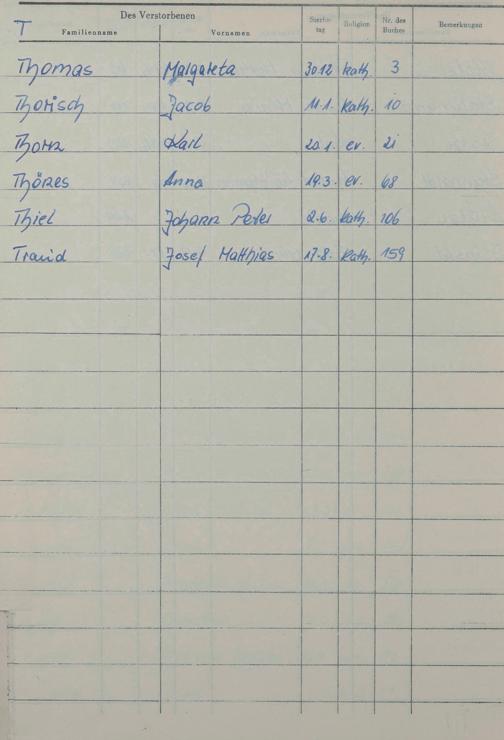 Des Verstorbenen Sterbe- Religion Nr. des Bemerkungen
T Familienname Vornamen tag Buches
Thomas Margareta 30.12 kath. 3
Thorisch Jacob 11.1. kath. 10
Thorn Karl 20.1. ev. 21
Thönes Anna 19.3. ev. 68
Thiel Johann Peter 2.6. kath. 106
Traud Josef Matthias 17.8. kath. 159